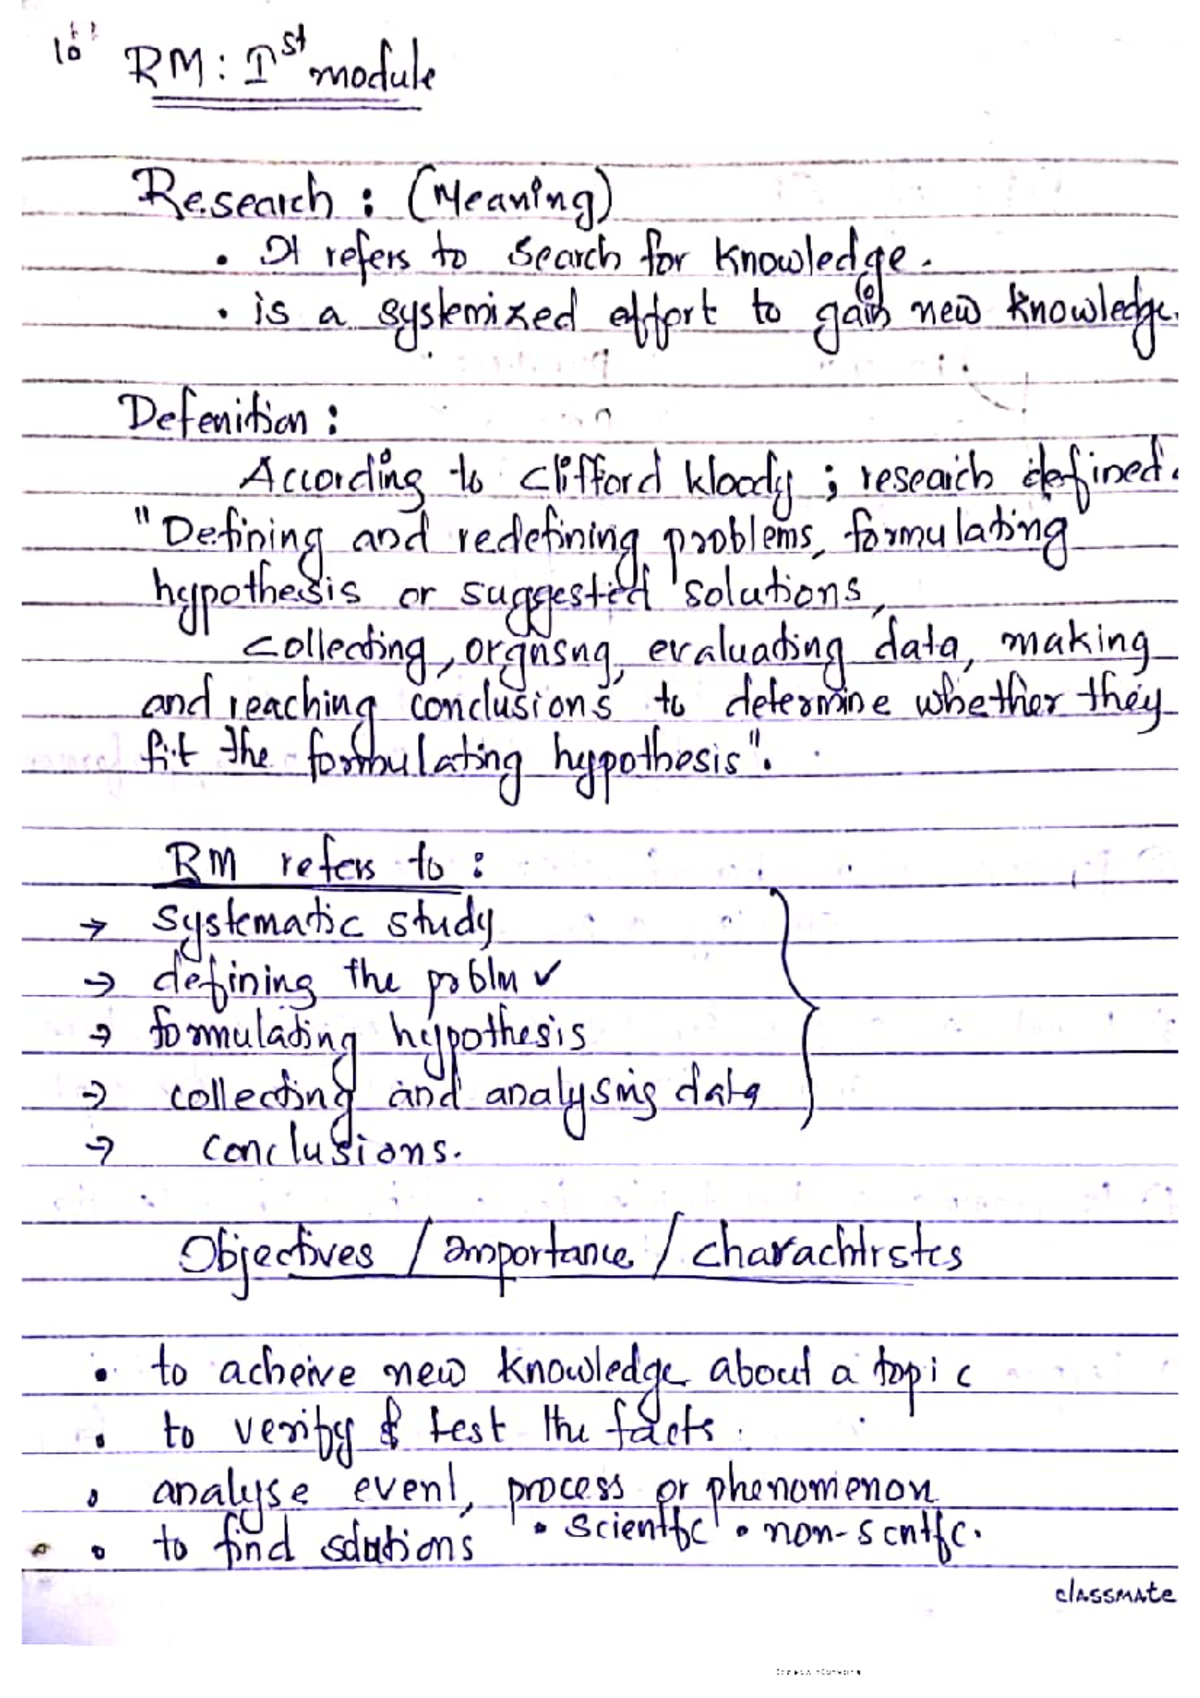 RM: Ist module
Research : (Meaning)
• It refers to search for knowledge.
• is a systemized effort to gain new knowledge.
Defenition :
According to clifford kloody ; research defined.
"Defining and redefining problems, formulating
hypothesis or suggested solutions,
collecting, orgnsng, evaluating data, making
and reaching conclusions to determine whether they
fit the formulating hypothesis".
RM refers to :
→ systematic study
→ defining the problm ✓
→ formulating hypothesis
→ collecting and analysing data
→ conclusions.
Objectives / importance / charachtrstcs
• to acheive new knowledge about a topic
• to verify & test the facts.
• analyse event, process or phenomenon
• scientfc • non-scntfc.
• to find solutions
classmate